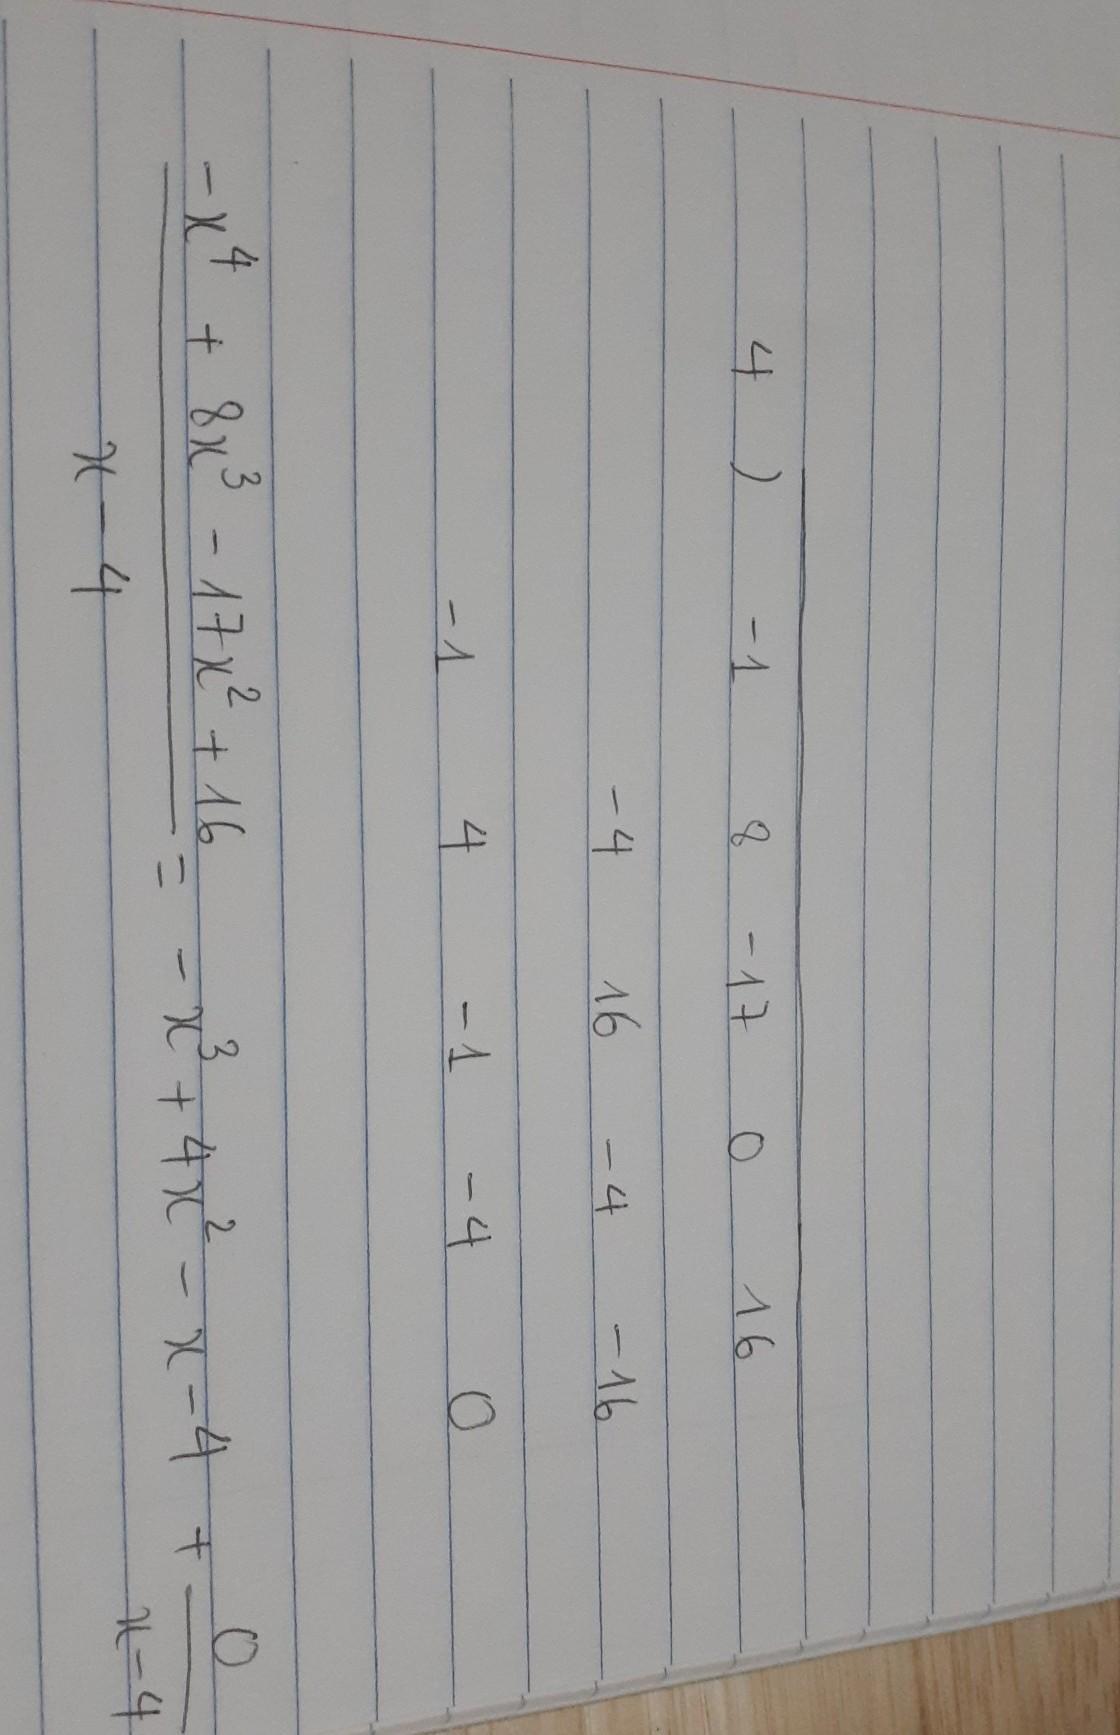 4 ) -1 8 -17 0 16
-4 16 -4 -16
-1 4 -1 -4 0
-x⁴ + 8x³ - 17x² + 16 = -x³ + 4x² - x - 4 + 0
x - 4 x - 4